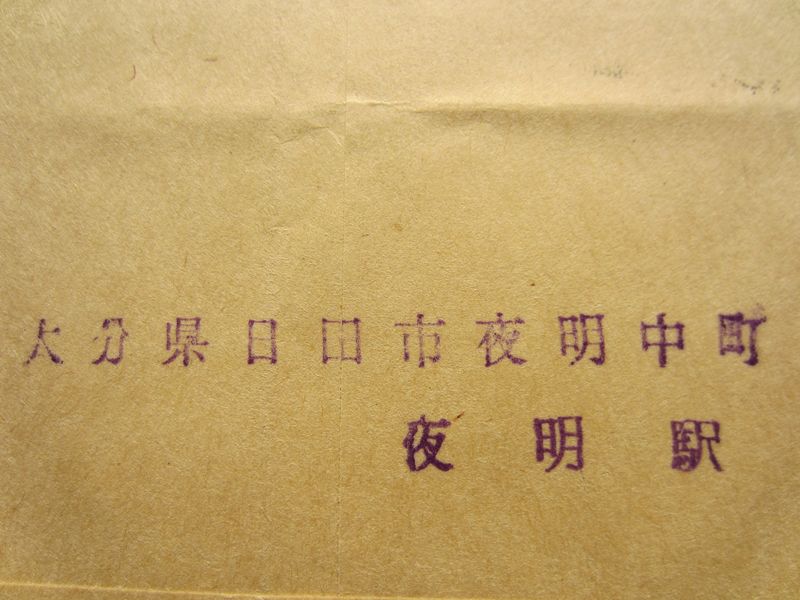 大分県日田市夜明中町
夜明駅